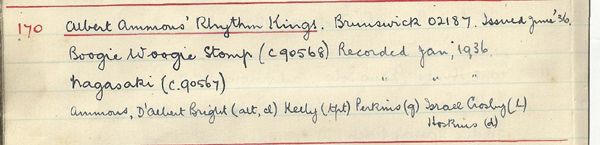 170 Albert Ammons' Rhythm Kings. Brunswick 02187. Issued June '36.
Boogie Woogie Stomp (C90568) Recorded Jan, 1936.
Nagasaki (C.90567) " " "
Ammons, D'albert Bright (alt, cl) Kelly (tpt) Perkins (g) Israel Crosby (b)
Hoskins (d)